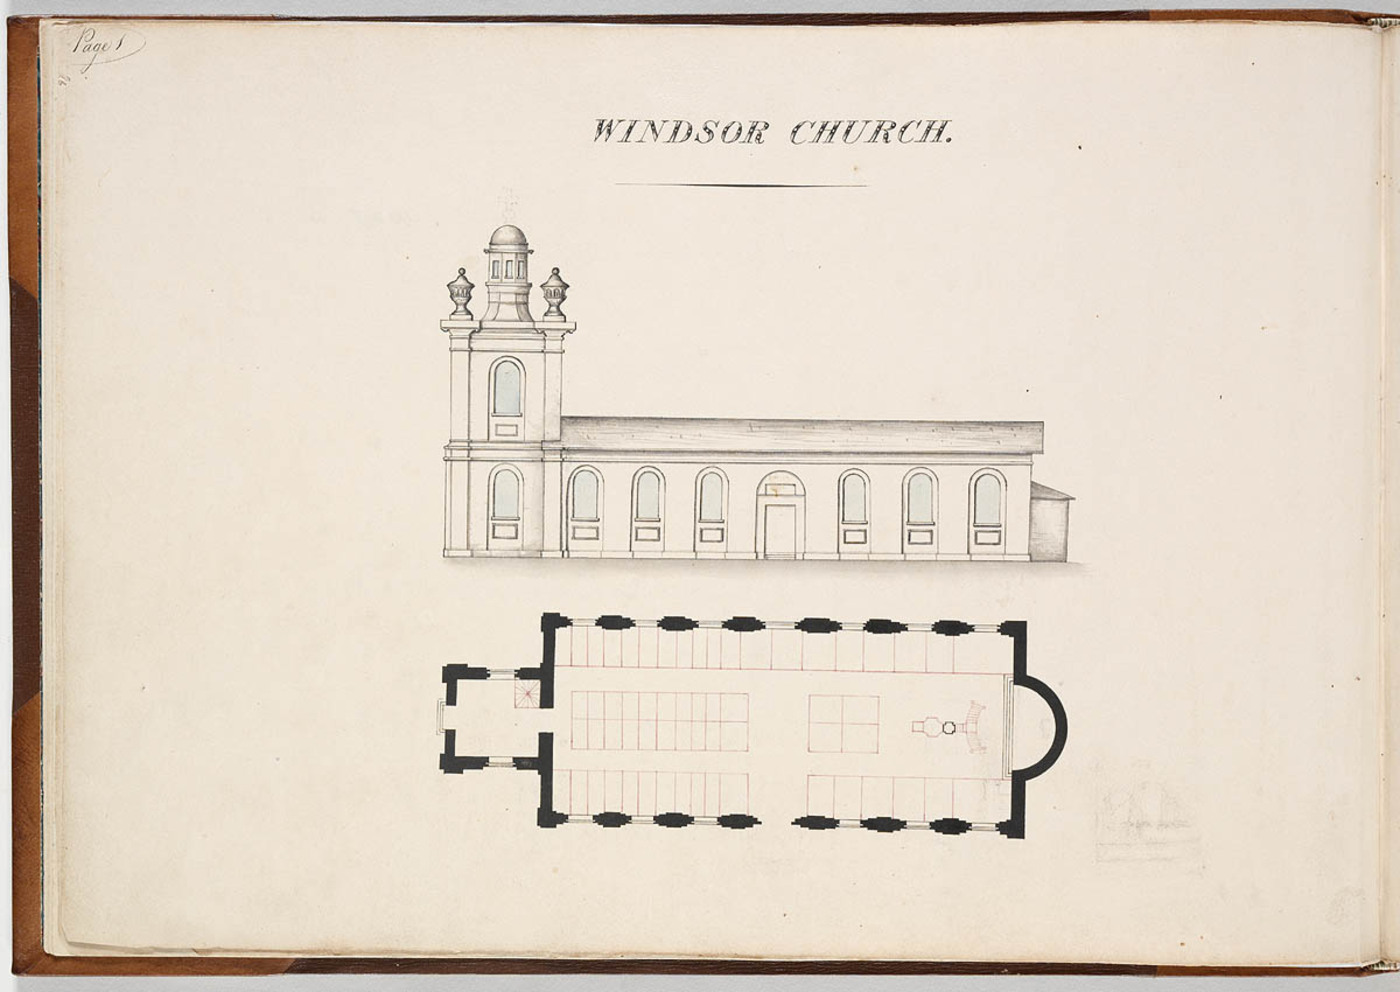 Page 1
WINDSOR CHURCH.